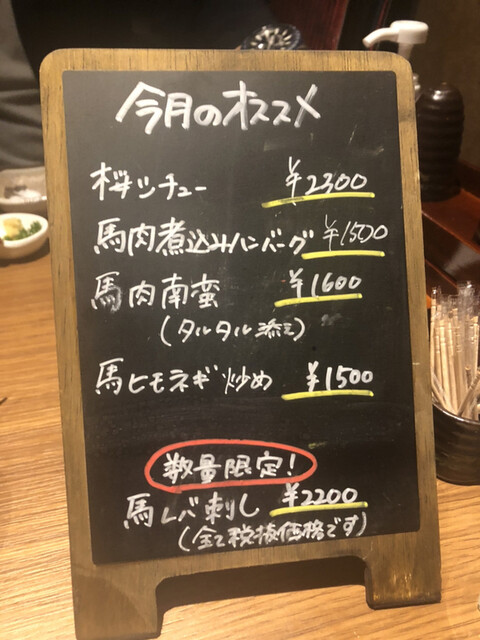 今月のオススメ
桜シチュー ¥2300
馬肉煮込みハンバーグ ¥1500
馬肉南蛮 ¥1600
(タルタル添え)
馬ヒモネギ炒め ¥1500
数量限定!
馬レバ刺し ¥2200
(全て税抜価格です)